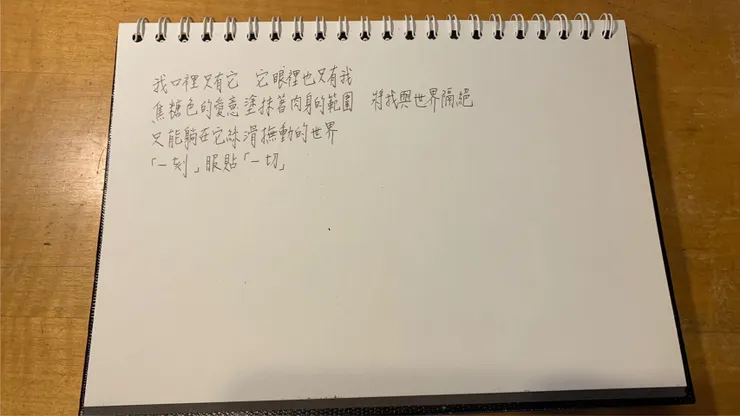 我口裡只有它　它眼裡也只有我
焦糖色的愛意塗抹著肉身的範圍　將我與世界隔絕
只能躺在它絲滑撫動的世界
「一刻」服貼「一切」